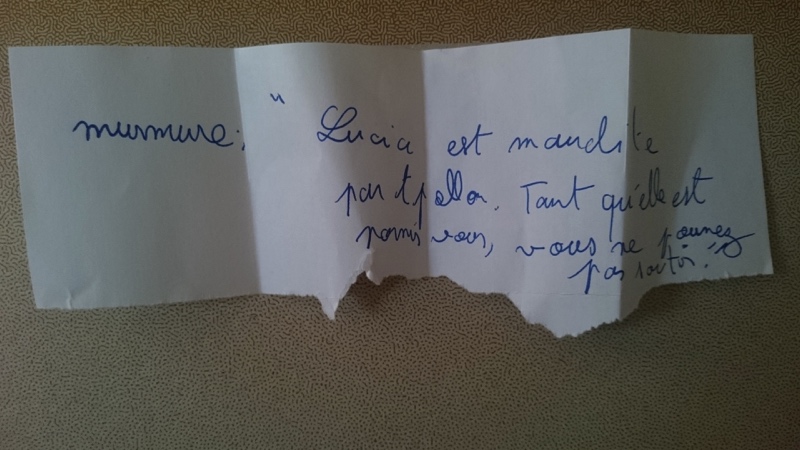 murmure: " Lucia est maudite
par Apollon. Tant qu'elle est
parmis vous, vous ne pouvez
pas sortir."